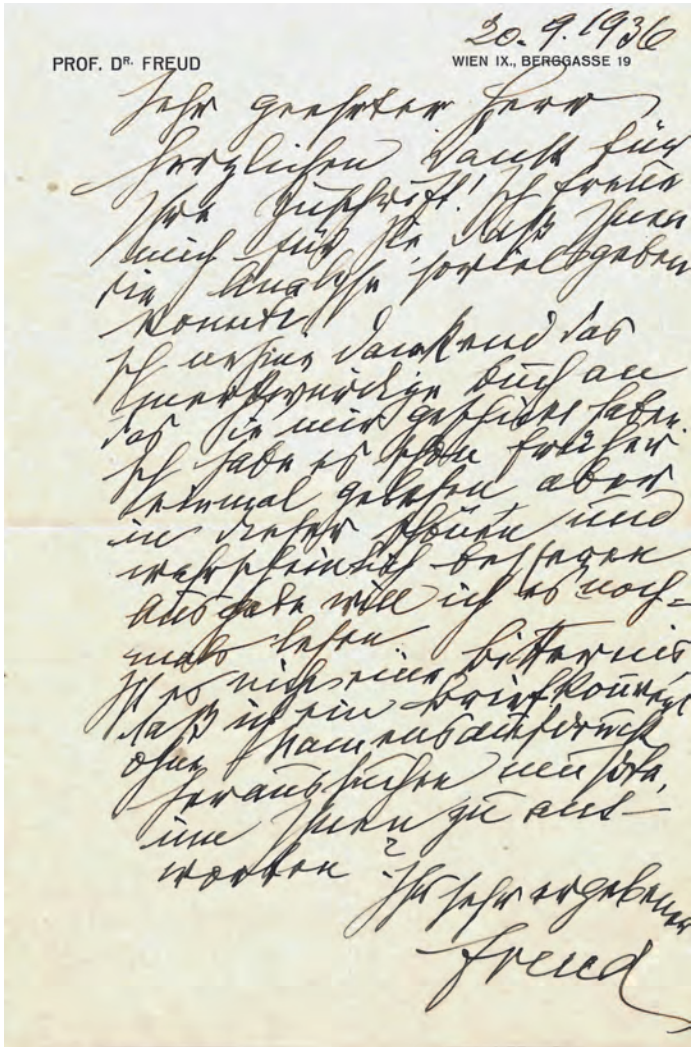 20. 9. 1936
PROF. DR. FREUD
WIEN IX., BERGGASSE 19
Sehr geehrter Herr
Herzlichen Dank für
Ihre Zuschrift! Ich freue
mich für Sie daß Ihnen
die Analyse soviel geben
konnte.
Ich nehme dankend das
merkwürdige Buch an
das Sie mir geschickt haben.
Ich habe es schon früher
einmal gelesen aber
in dieser schönen und
wahrscheinlich besseren
Ausgabe will ich es noch=
mals lesen.
Ist es nicht eine Bitternis
daß ich ein Briefkouvert
ohne Namensaufdruck
heraussuchen mußte,
um Ihnen zu ant—
worten?
Ihr sehr ergebener
Freud